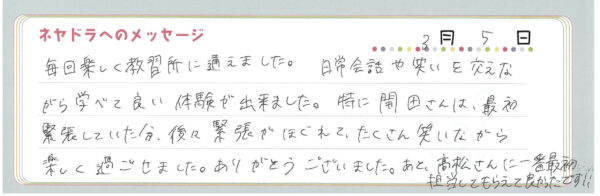 ネヤドラへのメッセージ
3月 5日
毎回楽しく教習所に通えました。 日常会話や笑いを交えな
がら学べて良い体験が出来ました。特に開田さんは、最初
緊張していた分、後々緊張がほぐれて、たくさん笑いながら
楽しく過ごせました。ありがとうございました。あと、高松さんに一番最初
担当してもらえて良かったです!!